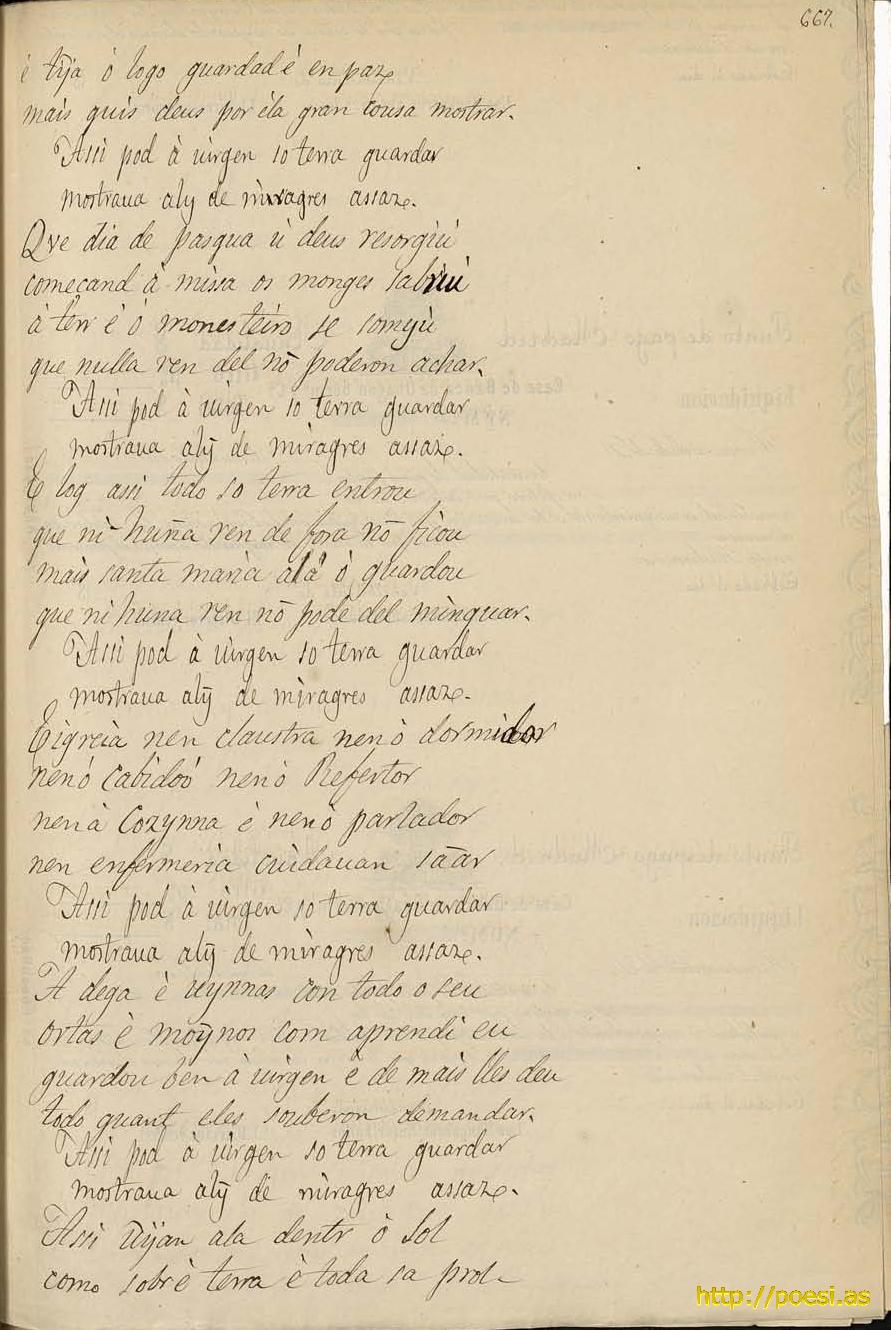 667.
é tija ó logo guardad é en paz
mais quis deus por éla gran cousa mostrar.
Assi pod à uirgen so terra guardar
mostraua aly de miragres assaz.
Que dia de pasgua ú deus resorgiu
começand à missa os monges
à terr é ó monesteiro se somyú
que nulla ren del nō poderon achar.
Assi pod à uirgen so terra guardar
mostraua alȳ de miragres assaz.
E log assi todo so terra entrou
que ni-huña ren de fora nō ficou
mais santa maria alá ó guardou
que ni huna ren nō pode del minguar.
Assi pod à uirgen so terra guardar
mostraua alȳ de miragres assaz.
E igreia nen claustra nen ò dormidor
nen ó cabidoó nen ò Refertor
nen à Cozynna è nen ò parlador
nen enfermeria cuidauan sāar
Assi pod à uirgen so terra guardar
mostraua alȳ de miragres assaz.
A dega è uynnas con todo o seu
ortas è moȳnos com aprendi eu
guardou ben à uirgen è de mais lles deu
todo quant eles souberon demandar.
Assi pod à uirgen so terra guardar
mostraua alȳ de miragres assaz.
Assi uijan ala dentr ò Sol
como sobr è terra è toda sa prol
http://poesi.as